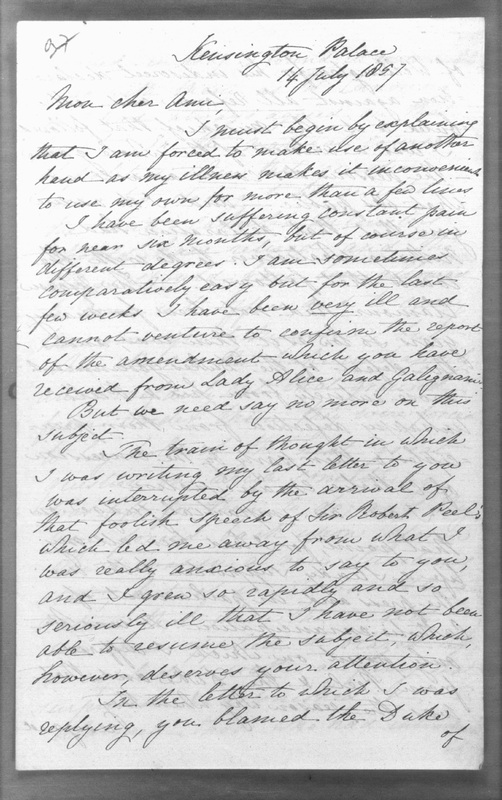 Kensington Palace
14 July 1857
Mon cher Ami,
I must begin by explaining
that I am forced to make use of another
hand as my illness makes it inconvenient
to use my own for more than a few lines
I have been suffering constant pain
for near six months, but of course in
different degrees. I am sometimes
comparatively easy but for the last
few weeks I have been very ill and
cannot venture to confirm the report
of the amendment which you have
received from Lady Alice and Galignani.
But we need say no more on this
subject.
The train of thought in which
I was writing my last letter to you
was interrupted by the arrival of
that foolish speech of Sir Robert Peel's
which led me away from what I
was really anxious to say to you,
and I grew so rapidly and so
seriously ill that I have not been
able to resume the subject, which,
however, deserves your attention.
In the letter to which I was
replying, you blamed the Duke
of